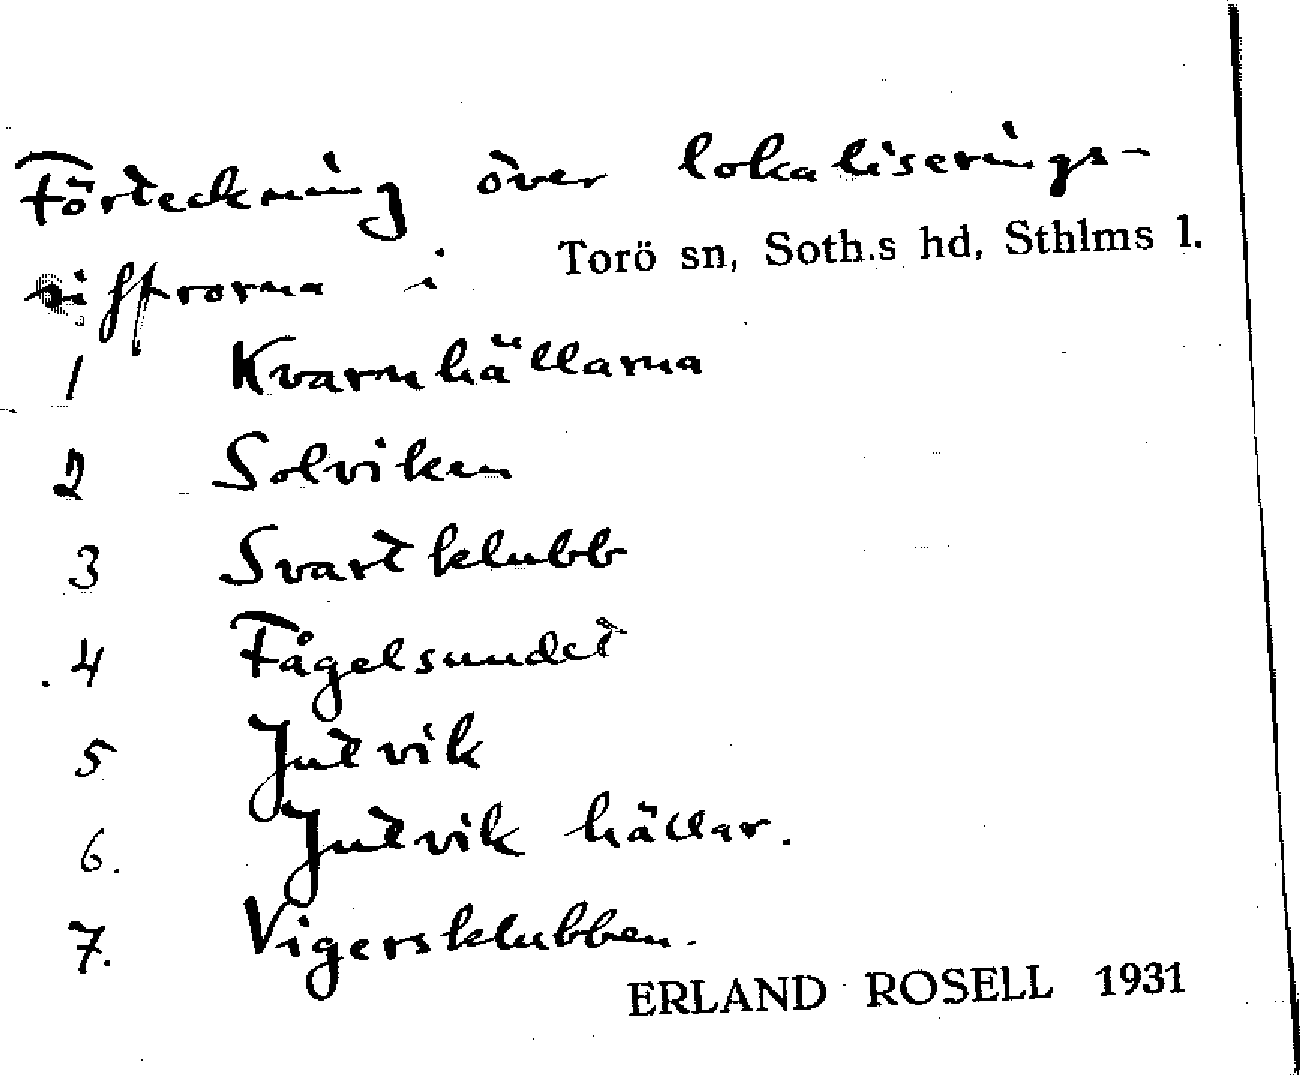 Förteckning över lokaliserings-
siffrorna i Torö sn, Soth.s hd, Sthlms l.
1 Kvarnhällarna
2 Solviken
3 Svartklubb
4 Fågelsundet
5 Jutvik
6. Jutvik hällar.
7. Vigersklubben.
ERLAND ROSELL 1931